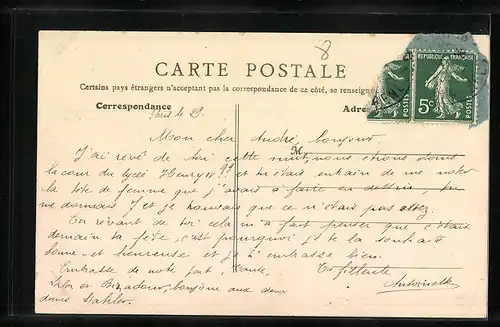 8
CARTE POSTALE
Certains pays étrangers n'acceptant pas la correspondance de ce côté, se renseigner
Correspondance
Adre
Paris le 29
RÉPUBLIQUE FRANÇAISE
5c
POSTES
POSTES
M
Mon cher André, bonjour
J'ai rêvé de toi cette nuit, nous étions dans
la cour du lycée Henry IV et tu étais entrain de me noter
la tête de femme que j'avais à faire en dessin, tu
me donnais 7 et je trouvais que ce n'était pas assez.
En rêvant de toi cela m'a fait penser que c'était
demain ta fête, c'est pourquoi je te la souhaite
bonne et heureuse et je t'embrasse bien.
Embrasse de notre part,
et bonjour aux deux
Antoinette